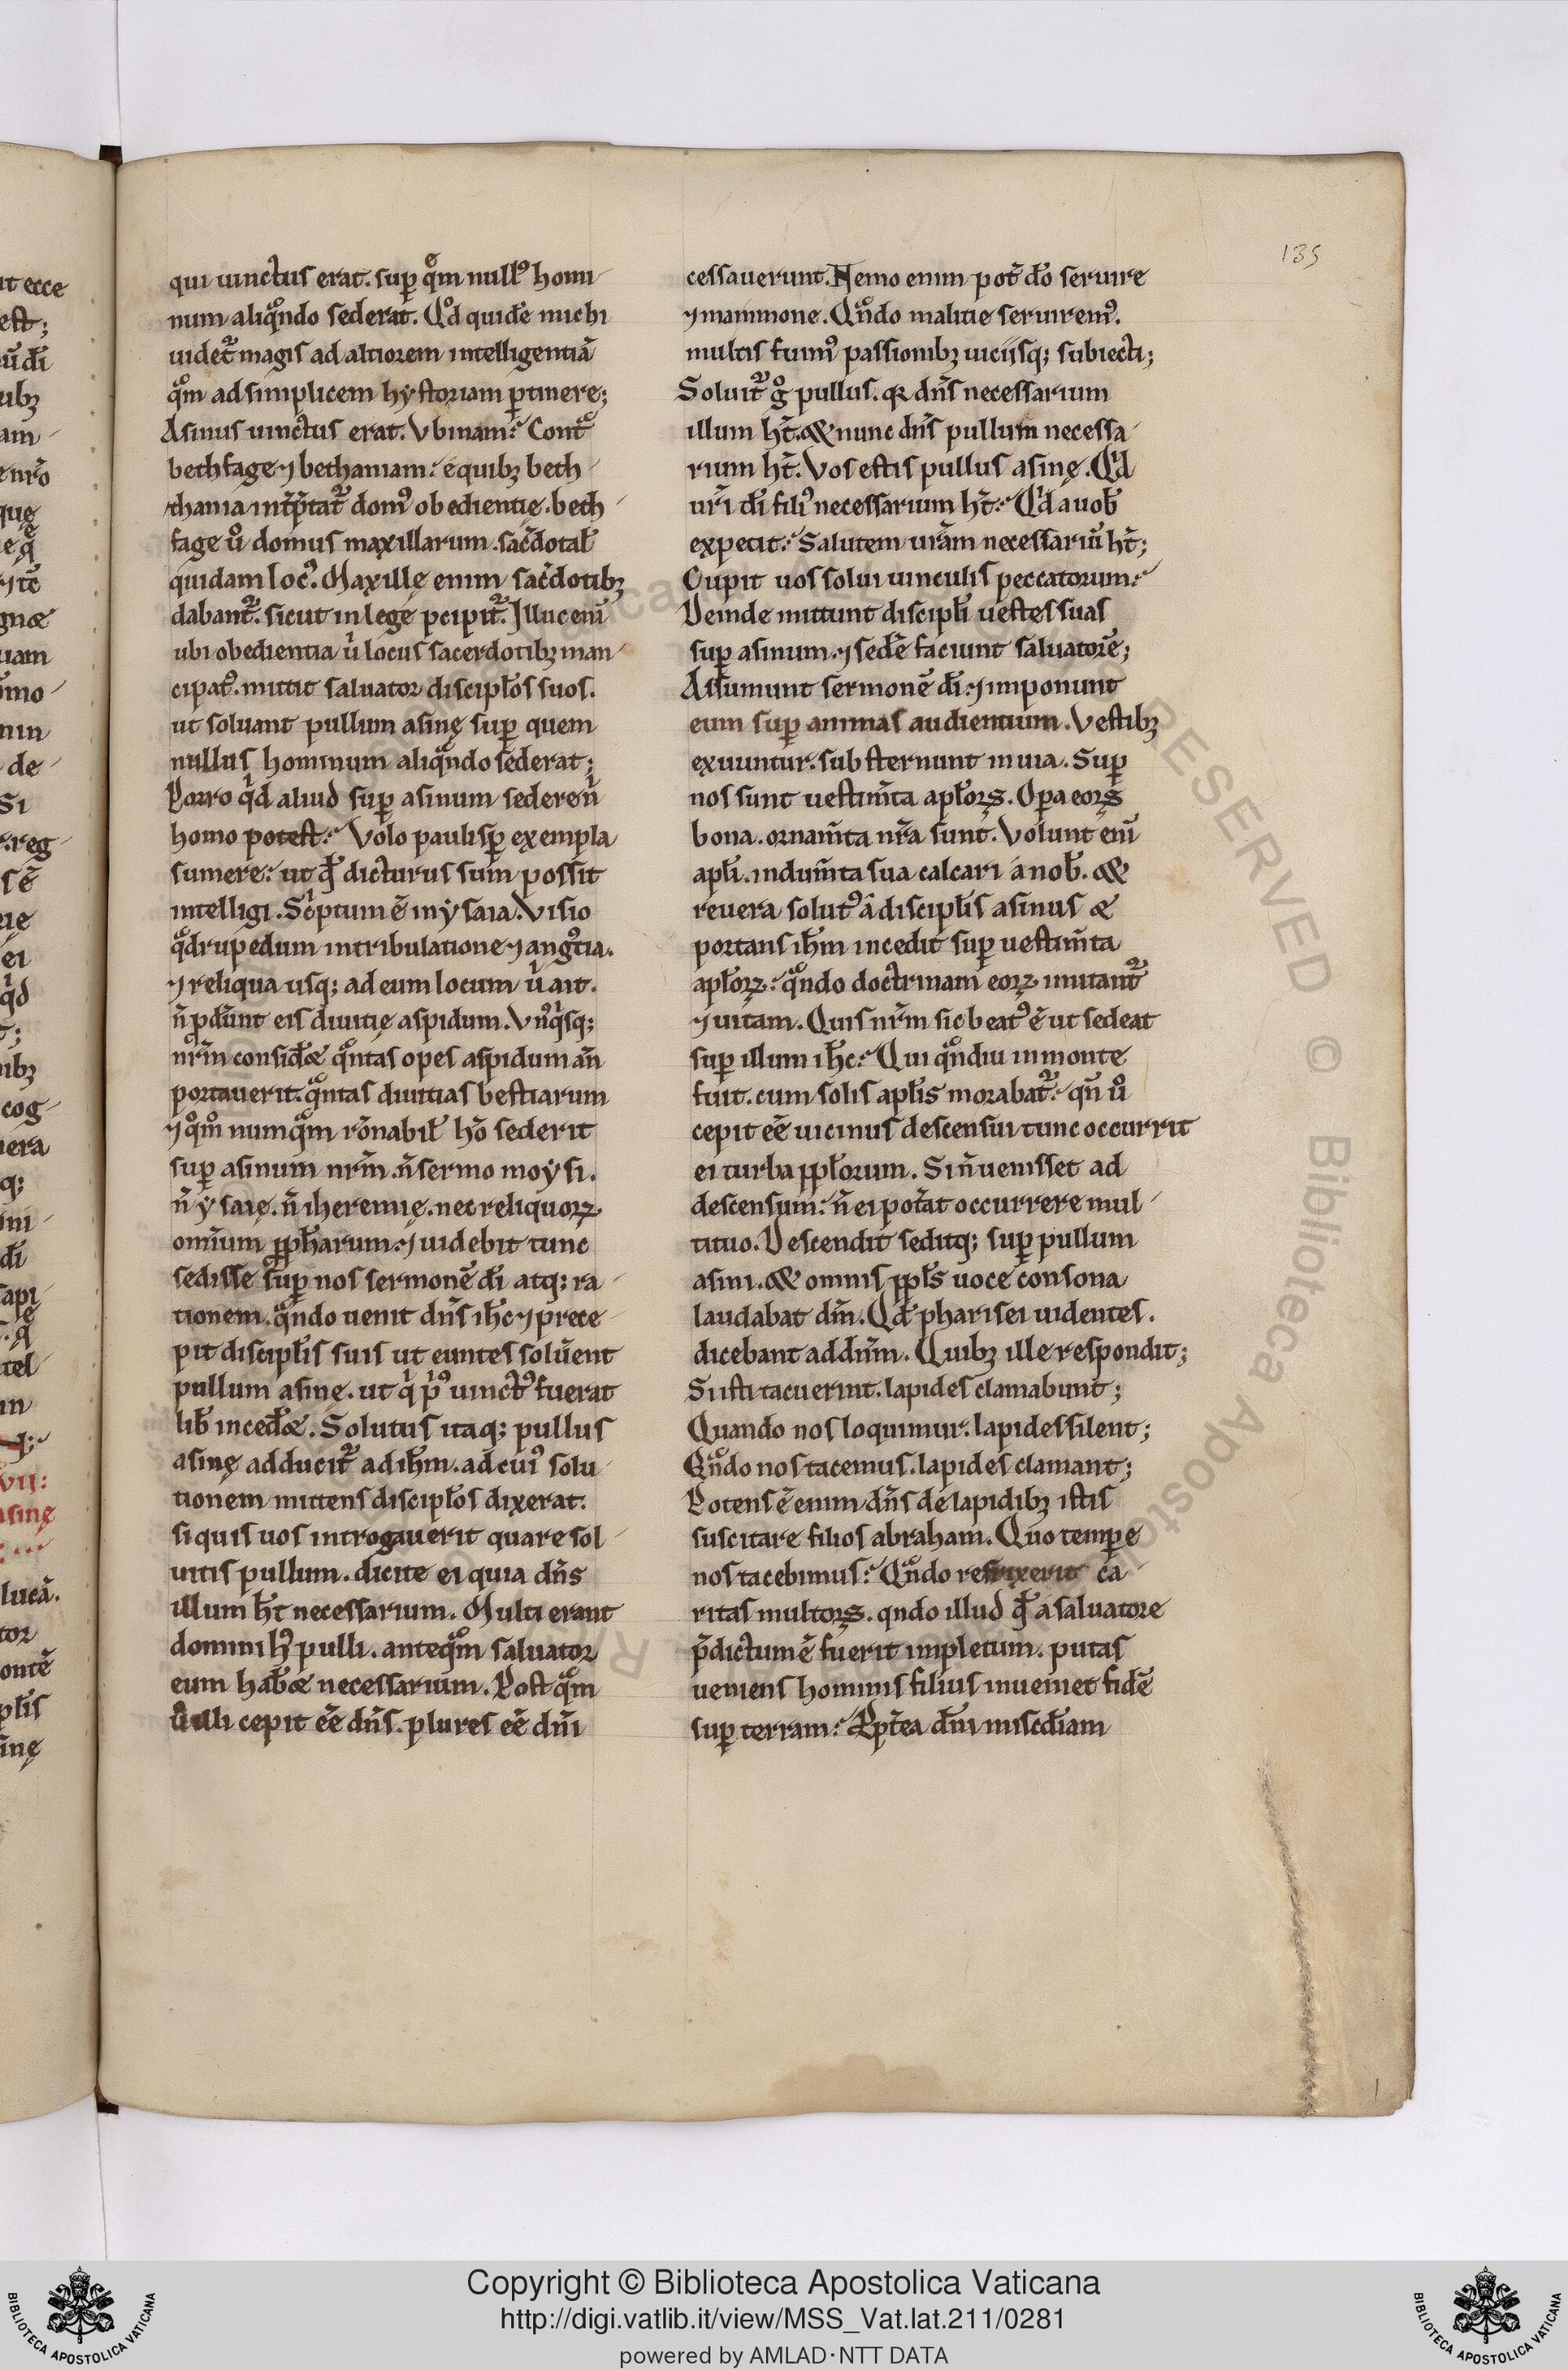 135
qui uinctus erat. suꝑ qͤm null᷒ homi-
num aliqͦndo sederat. Qͦd quidē michi
uidet᷑ magis ad altiorem intelligentiā
qͦm ad simplicem hystoriam ꝑtinere;
Asinus uinctus erat. Vbinam? Contͦ
bethfage ⁊ bethaniam. equibꝫ beth-
thania int̄p̄tat᷑ dom᷒ obedientię. beth-
fage u̇ domus maxillarum. sac̄dotal̄
quidam loc᷒. Maxillę enim sac̄dotibꝫ
dabant᷑. sicut in lege p̄cipit᷑. Illuc enī
ubi obedientia uͥ locus sacerdotibꝫ man-
cipat᷒. mittit saluator discipl̄os suos.
ut soluant pullum asinę suꝑ quem
nullus hominum aliqͦndo sederat;
Porro qͥd aliud suꝑ asinum sedere nͥ
homo potest? Volo paulisꝑ exempla
sumere. ut q̄ dicturus sum possit
intelligi. Scͥptum ē in ysaia. Visio
qͦdrupedum in tribulatione ⁊ ang᷒tia.
⁊ reliqua usq; ad eum locum uͥ ait.
n̄ ꝓder̄unt eis diuitię aspidum. Vn᷒qͥsq;
nr̄m consid̄et qͦntas opes aspidum añ
portauerit. qͦntas diuitias bestiarum
⁊ qͦm numqͦm rōnabil̄ hō sederit
suꝑ asinum nr̄m. n̄ sermo moysi.
n̄ ysaię. n̄ iheremię. nec reliquoꝝ
omnium ꝓph̄arum. ⁊ uidebit tunc
sedisse suꝑ nos sermonē dī atq; ra-
tionem. qͦndo uenit dn̄s ih̄c ⁊ prece-
pit discipl̄is suis ut euntes solūent
pullum asinę. ut qͥ p̄᷒ uinct᷒ fuerat
lib̄ inced̄et. Solutus itaq; pullus
asinę adducit᷑ ad ih̄m. ad cui᷒ solu-
tionem mittens discipl̄os dixerat.
si quis uos introgauerit quare sol-
uitis pullum. dicite ei quia dn̄s
illum h̄t necessarium. Multi erant
domini h᷒ pulli. anteqͦm saluator
eum hab̄et necessarium. Postqͦm
u̇ illi cepit eē dn̄s. plures eē dn̄i
cessauerunt. Nemo enim pot̄ dō seruire
⁊ mammone. Qͦndo malitie seruirem᷒.
multis fuim᷒ passionibꝫ uiciisq; subiecti;
Soluit᷑ gͦ pullus. qꝛ dn̄s necessarium
illum h̄t. & nunc dn̄s pullum necessa-
rium h̄t. Vos estis pullus asinę. Qͥd
ur̄i dī fili᷒ necessarium h̄t? Qͥd a uob̄
expetit? Salutem ur̄am necessariū h̄t;
Cupit uos solui uinculis peccatorum.
Deinde mittunt discipl̄i uestes suas
suꝑ asinum. ⁊ sedē faciunt saluatorē;
Assumunt sermonē dī. ⁊ imponunt
eum suꝑ animas audientium. Vestibꝫ
exuuntur. substernunt in uia. Suꝑ
nos sunt uestim̄ta apl̄oꝝ. Oꝑa eoꝝ
bona. ornam̄ta nr̄a sunt. Volunt enī
apl̄i. indum̄ta sua calcari a nob̄. &
reuera solut᷒ a discipl̄is asinus &
portans ih̄m incedit suꝑ uestim̄ta
apl̄oꝝ. qͦndo doctrinam eoꝝ imitant᷑
⁊ uitam. Quis nr̄m sic beat᷒ ē ut sedeat
suꝑ illum ih̄c? Qui qͦndiu in monte
fuit. cum solis apl̄is morabat᷑. qn̄ u̇
cepit eē uicinus descensui tunc occurrit
ei turba ppl̄orum. Si n̄ uenisset ad
descensum. n̄ ei pot̄at occurrere mul-
tituo. Descendit seditq; suꝑ pullum
asini. & omnis ppl̄s uoce consona
laudabat dm̄. Qd̄ pharisei uidentes.
dicebant ad dn̄m. Quibꝫ ille respondit;
Si isti tacuerint. lapides clamabunt;
Quando nos loquimur. lapides silent;
Qͦndo nos tacemus. lapides clamant;
Potens ē enim dn̄s de lapidibꝫ istis
suscitare filios abraham. Quo temꝑe
nos tacebimus? Qͦndo refrixerit ca-
ritas multoꝝ. qndo illud q̄ a saluatore
p̄dictum ē fuerit impletum. putas
ueniens hominis filius inueniet fidē
suꝑ terram? Ppt̄ea dn̄i misc̄diam
Copyright © Biblioteca Apostolica Vaticana
http://digi.vatlib.it/view/MSS_Vat.lat.211/0281
powered by AMLAD·NTT DATA